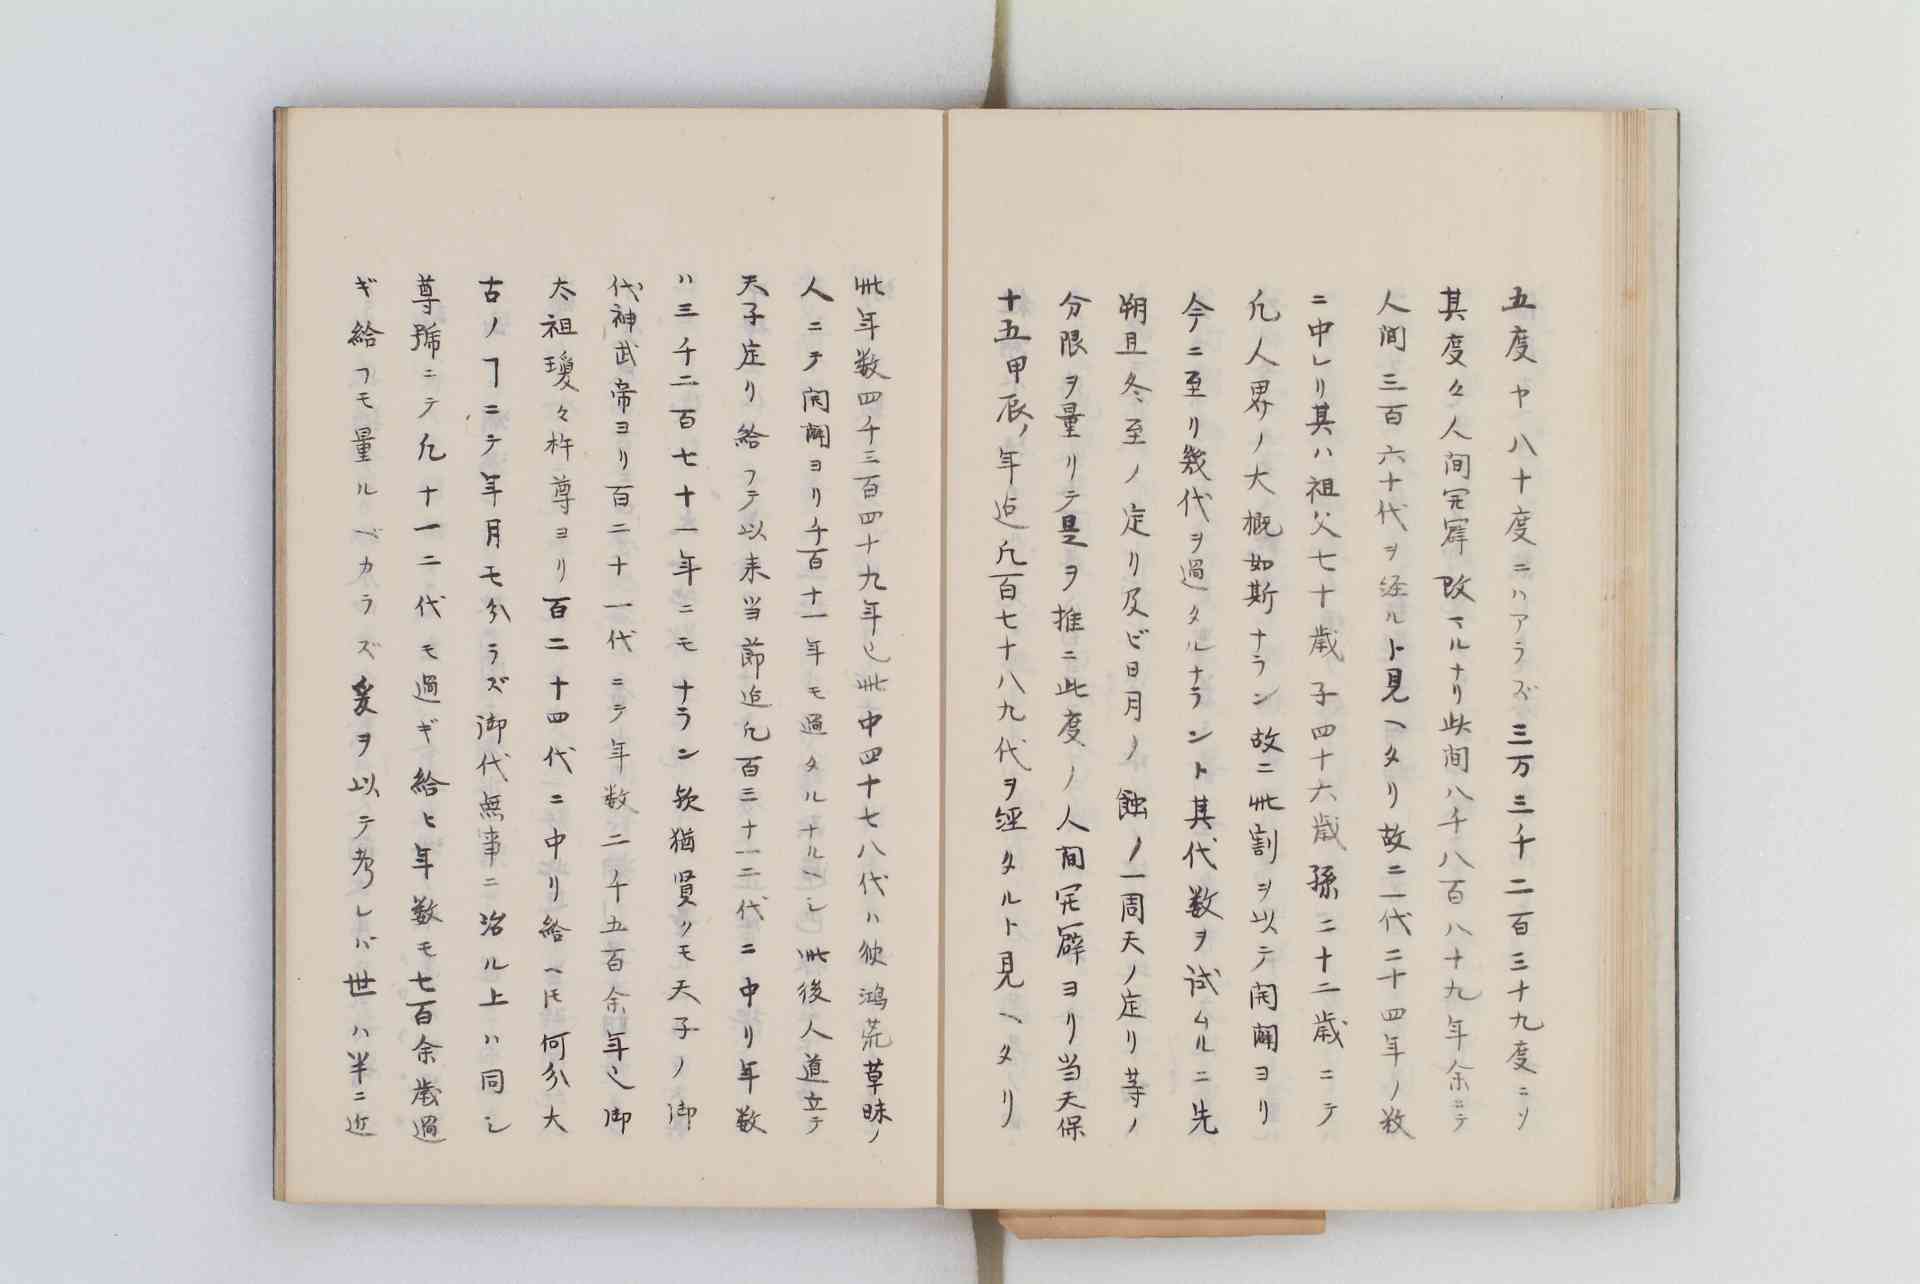 五度ヤ八十度ニハアラズ三万三千二百三十九度ニソ
其度々人間完窂改マルナリ此間八千八百八十九年余ニテ
人間三百六十代ヲ経ルト見ヘタリ故ニ一代二十四年ノ数
ニ中レリ其ハ祖父七十歳子四十六歳孫二十二歳ニテ
凢人界ノ大概如斯ナラン故ニ此割ヲ以テ開闢ヨリ
今ニ至リ幾代ヲ過タルナラント其代数ヲ試ムルニ先
朔旦冬至ノ定リ及ビ日月ノ蝕ノ一周天ノ定リ等ノ
分限ヲ量リテ是ヲ推ニ此度ノ人間開闢ヨリ当天保
十五甲辰ノ年迠凢百七十八九代ヲ經タルト見ヘタリ
此年数四千三百四十九年也此中四十七八代ハ彼鴻荒草昧ノ
人ニテ開闢ヨリ千百十一年モ過タルナルヘシ此後人道立テ
天子定リ給フテ以来当節迠凢百三十一二代ニ中リ年数
ハ三千二百七十一年ニモナラン欤猶賢クモ天子ノ御
代神武帝ヨリ百二十一代ニテ年数二千五百余年也御
太祖瓊々杵尊ヨリ百二十四代ニ中リ給ヘ𪜈何分大
古ノヿニテ年月モ分ラズ御代無事ニ治ル上ハ同シ
尊號ニテ凢十一二代モ過ギ給ヒ年数モ七百余歳過
ギ給フモ量ルベカラズ爰ヲ以テ考レバ世ハ半ニ近